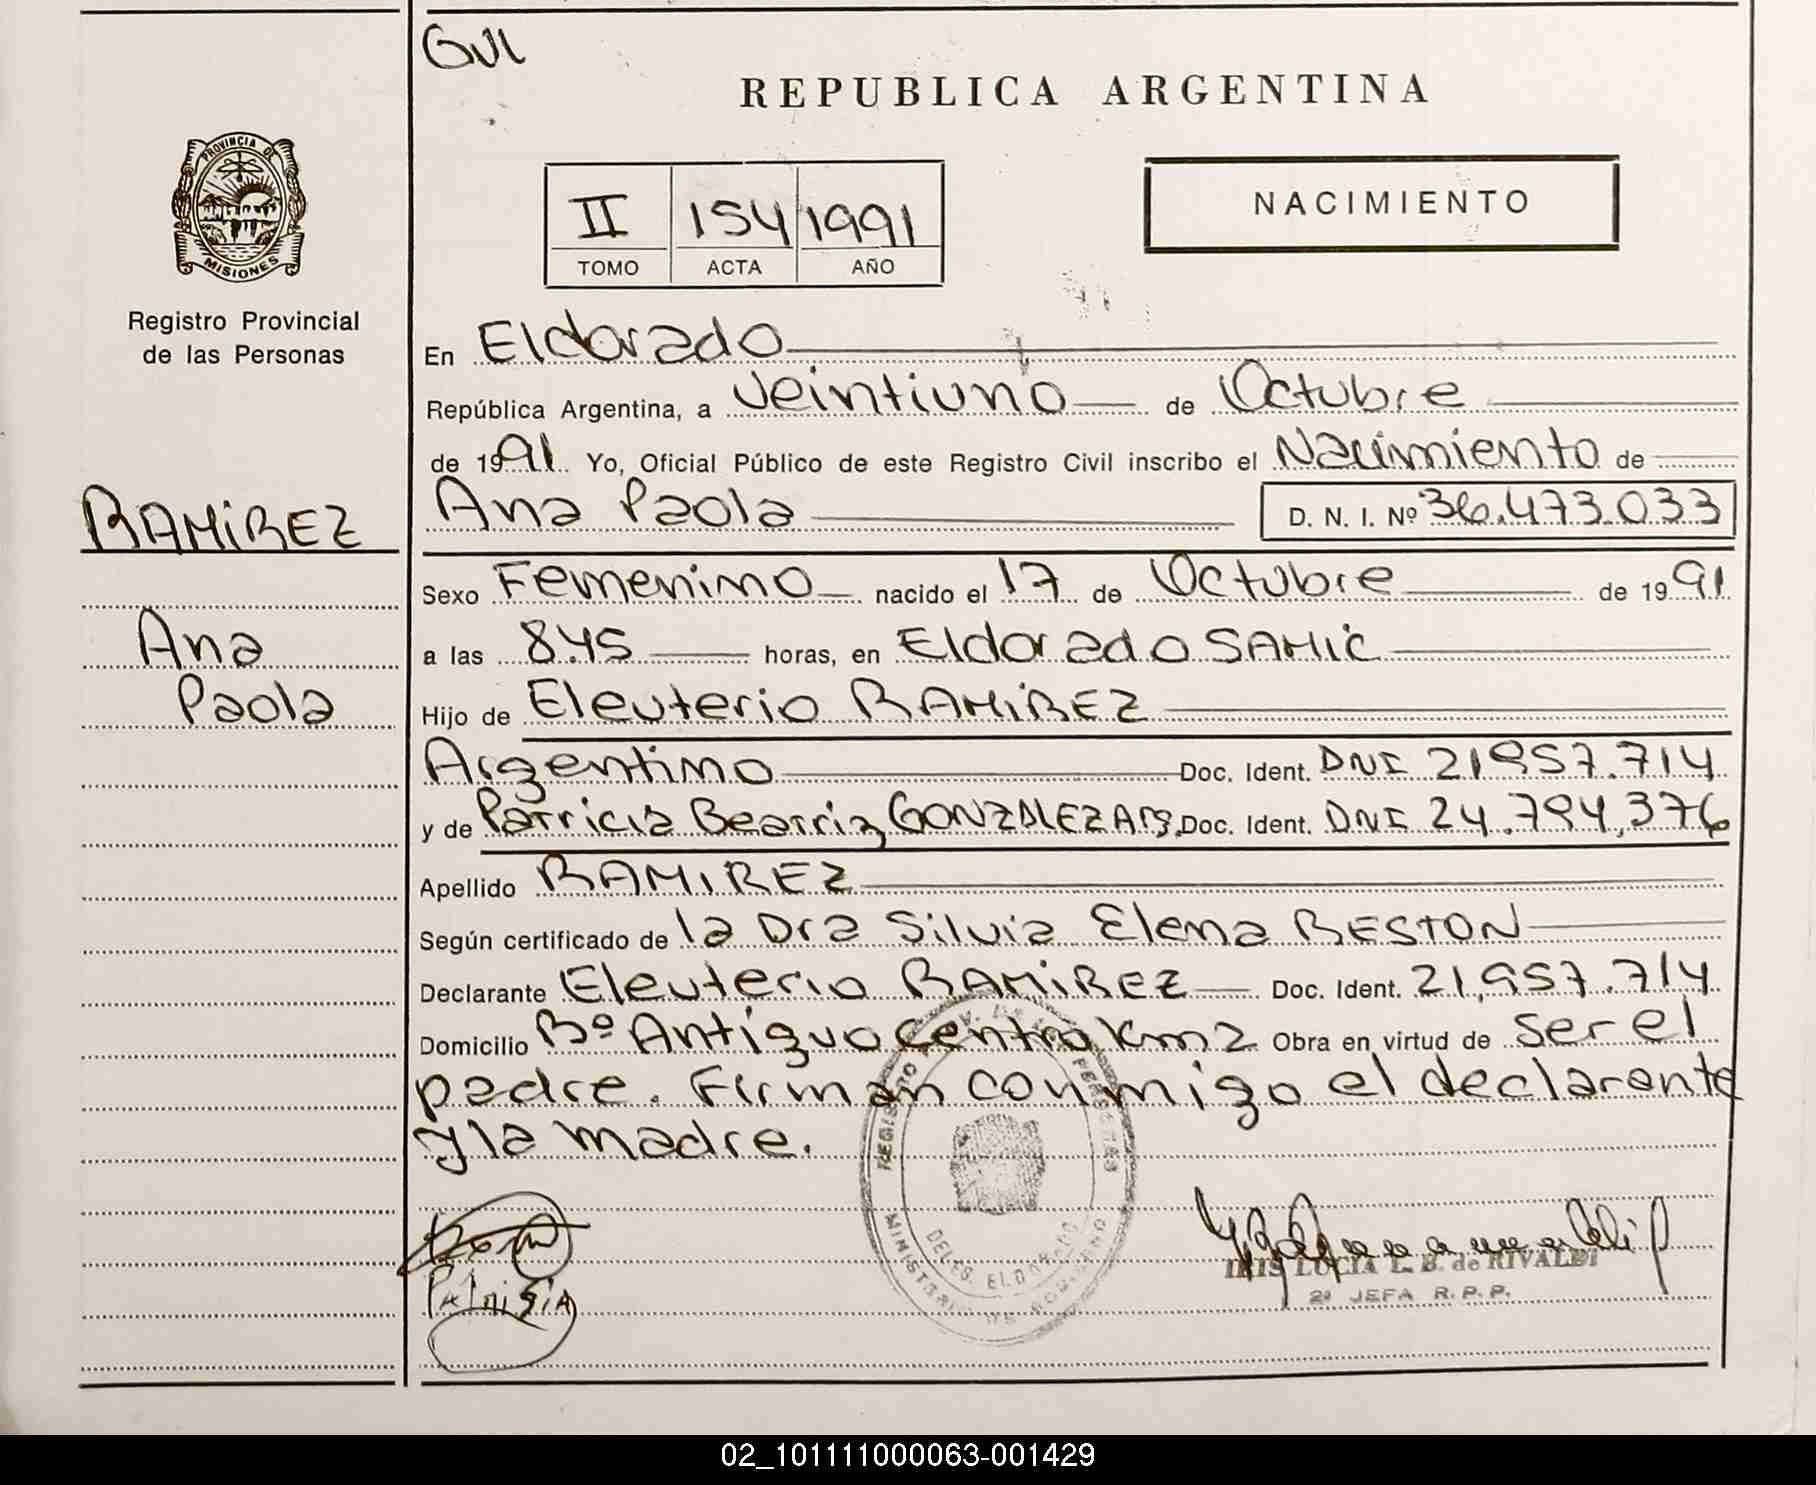 GUI
REPUBLICA ARGENTINA
PROVINCIA DE
MISIONES
Registro Provincial
de las Personas
II 154 1991
TOMO ACTA AÑO
NACIMIENTO
En Eldorado
República Argentina, a Veintiuno de Octubre
de 1991 Yo, Oficial Público de este Registro Civil inscribo el Nacimiento de
RAMIREZ
Ana Paola D. N. I. Nº 36.473.033
Sexo Femenino nacido el 17 de Octubre de 1991
Ana
a las 8.45 horas, en Eldorado SAMIC
Paola
Hijo de Eleuterio RAMIREZ
Argentino Doc. Ident. DNI 21957.714
y de Patricia Beatriz GONZALEZ Arg. Doc. Ident. DNI 24.794.376
Apellido RAMIREZ
Según certificado de la Dra Silvia Elena BESTON
Declarante Eleuterio RAMIREZ Doc. Ident. 21.957.714
Domicilio Bº Antiguo Centro Km 2 Obra en virtud de ser el
padre. Firman conmigo el declarante
y la madre.
REGISTRO PERSONAS
DELEG. ELDORADO
MINISTERIO DE GOBIERNO
IRIS LUCIA L. B. de RIVALDI
2ª JEFA R. P. P.
02_101111000063-001429